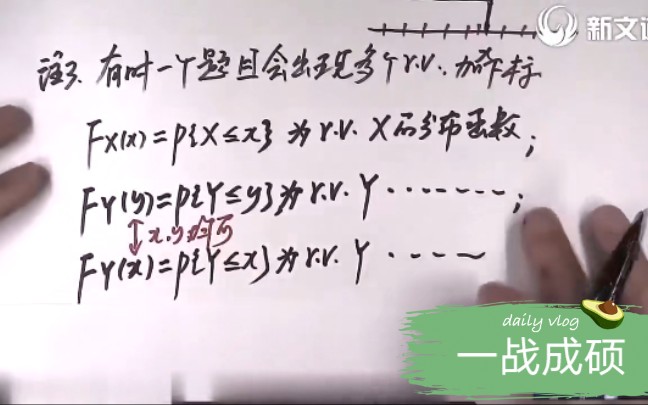 新文道
注3. 有时一个题目会出现多个r.v. 加下标
F_X(x)=P{X≤x}为r.v. X的分布函数;
F_Y(y)=P{Y≤y}为r.v. Y ········;
x.y均可
F_Y(x)=P{Y≤x}为r.v. Y ····~
daily vlog
一战成硕